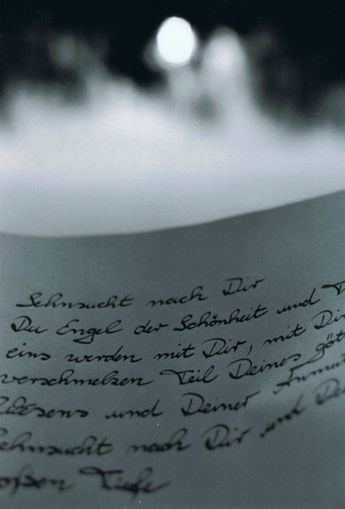 Sehnsucht nach Dir
Du Engel der Schönheit und
eins werden mit Dir, mit Dir
verschmelzen Teil Deines
Wesens und Deiner Anmut
Sehnsucht nach Dir und
großen Tiefe